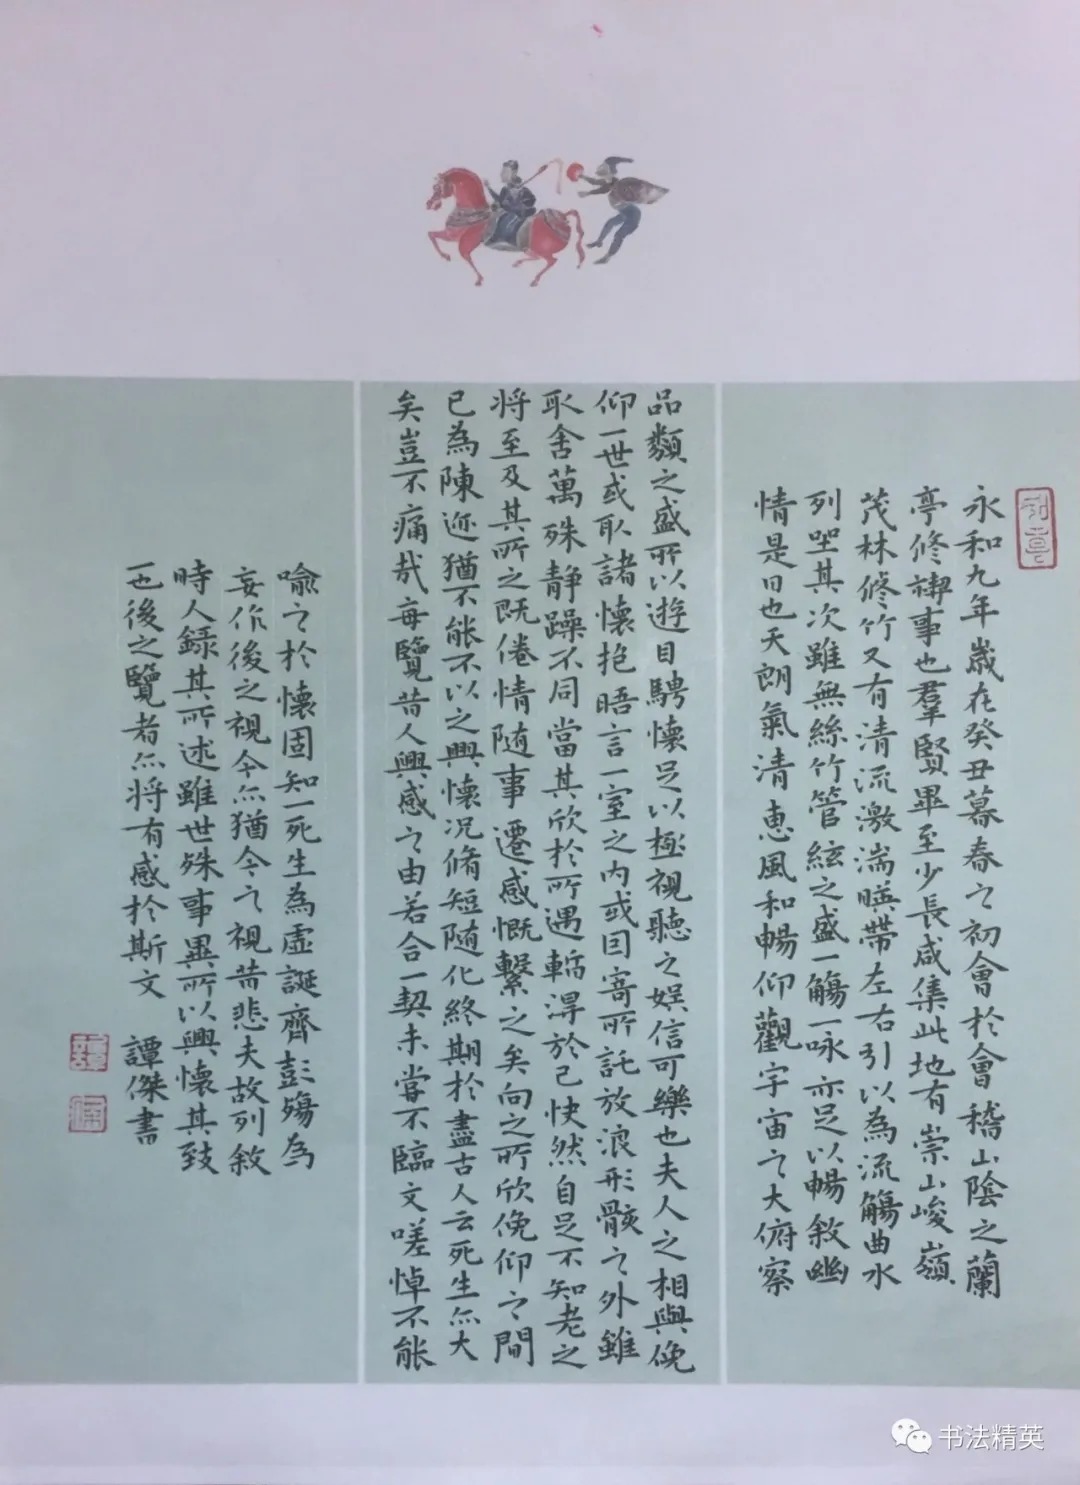 永和九年歲在癸丑暮春之初會於會稽山陰之蘭
亭修禊事也羣賢畢至少長咸集此地有崇山峻嶺
茂林修竹又有清流激湍暎帶左右引以為流觴曲水
列坐其次雖無絲竹管絃之盛一觴一咏亦足以暢敘幽
情是日也天朗氣清惠風和暢仰觀宇宙之大俯察
品類之盛所以遊目騁懷足以極視聽之娛信可樂也夫人之相與俛
仰一世或取諸懷抱晤言一室之內或因寄所託放浪形骸之外雖
取舍萬殊靜躁不同當其欣於所遇暫得於己快然自足不知老之
將至及其所之既倦情随事遷感慨繫之矣向之所欣俛仰之間
已為陳迹猶不能不以之興懷况脩短随化終期於盡古人云死生亦大
矣豈不痛哉每覽昔人興感之由若合一契未嘗不臨文嗟悼不能
喻之於懷固知一死生為虛誕齊彭殤為
妄作後之視今亦猶今之視昔悲夫故列敘
時人錄其所述雖世殊事異所以興懷其致
一也後之覽者亦將有感於斯文 譚傑書
书法精英